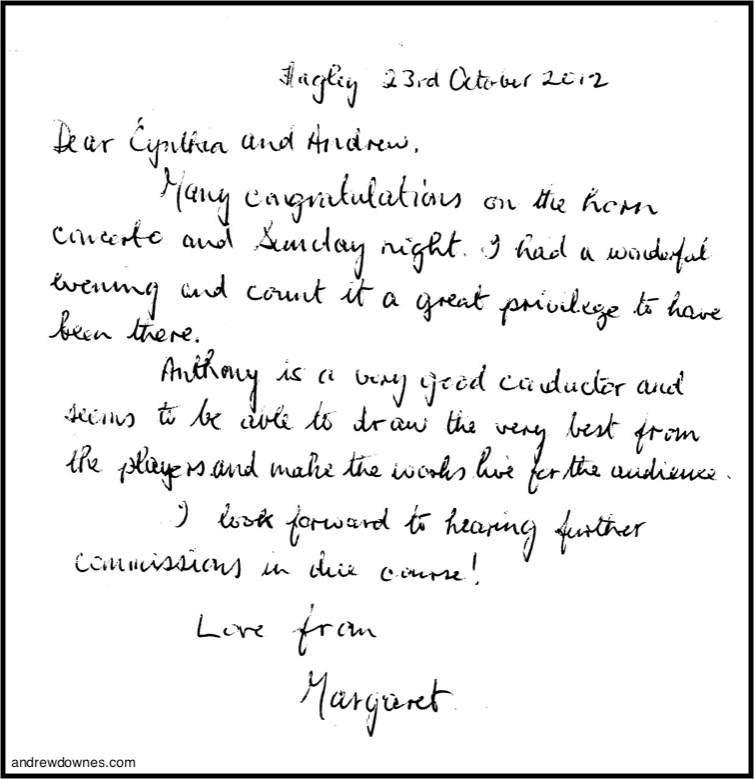 Hagley 23rd October 2012
Dear Cynthia and Andrew,
Many congratulations on the horn
concerto and Sunday night. I had a wonderful
evening and count it a great privilege to have
been there.
Anthony is a very good conductor and
seems to be able to draw the very best from
the players and make the works live for the audience.
I look forward to hearing further
commissions in due course!
Love from
Margaret
andrewdownes.com